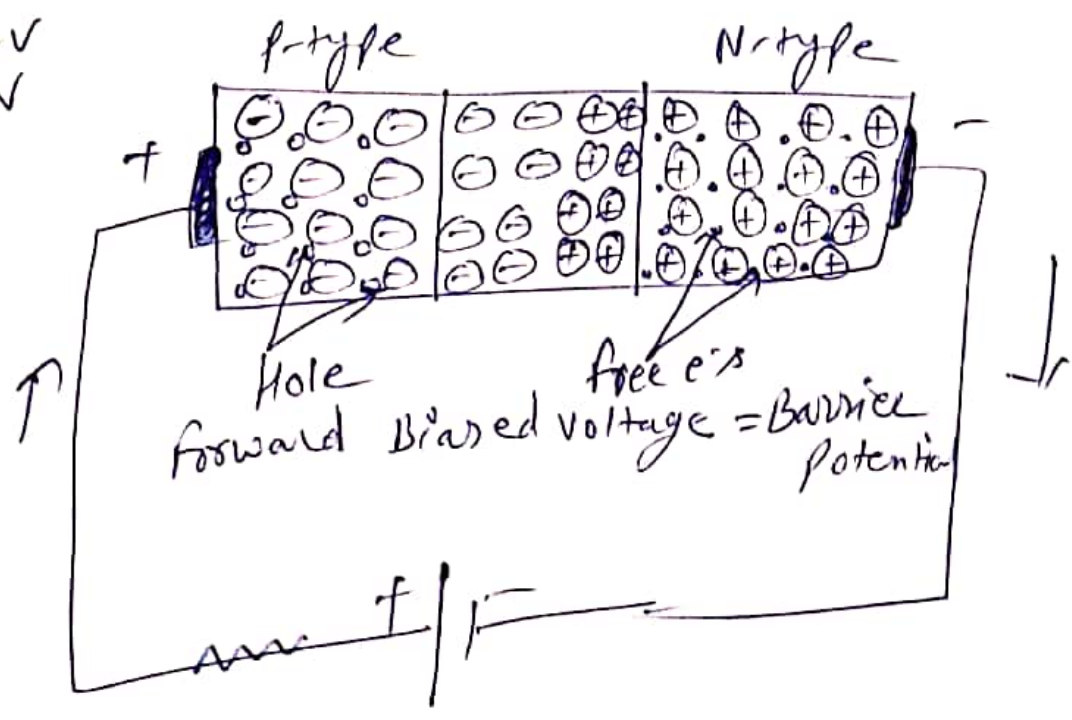 V
V
P-type
N-type
+
-
Hole
free e's
Forward Biased Voltage = Barrier
Potential
+
-